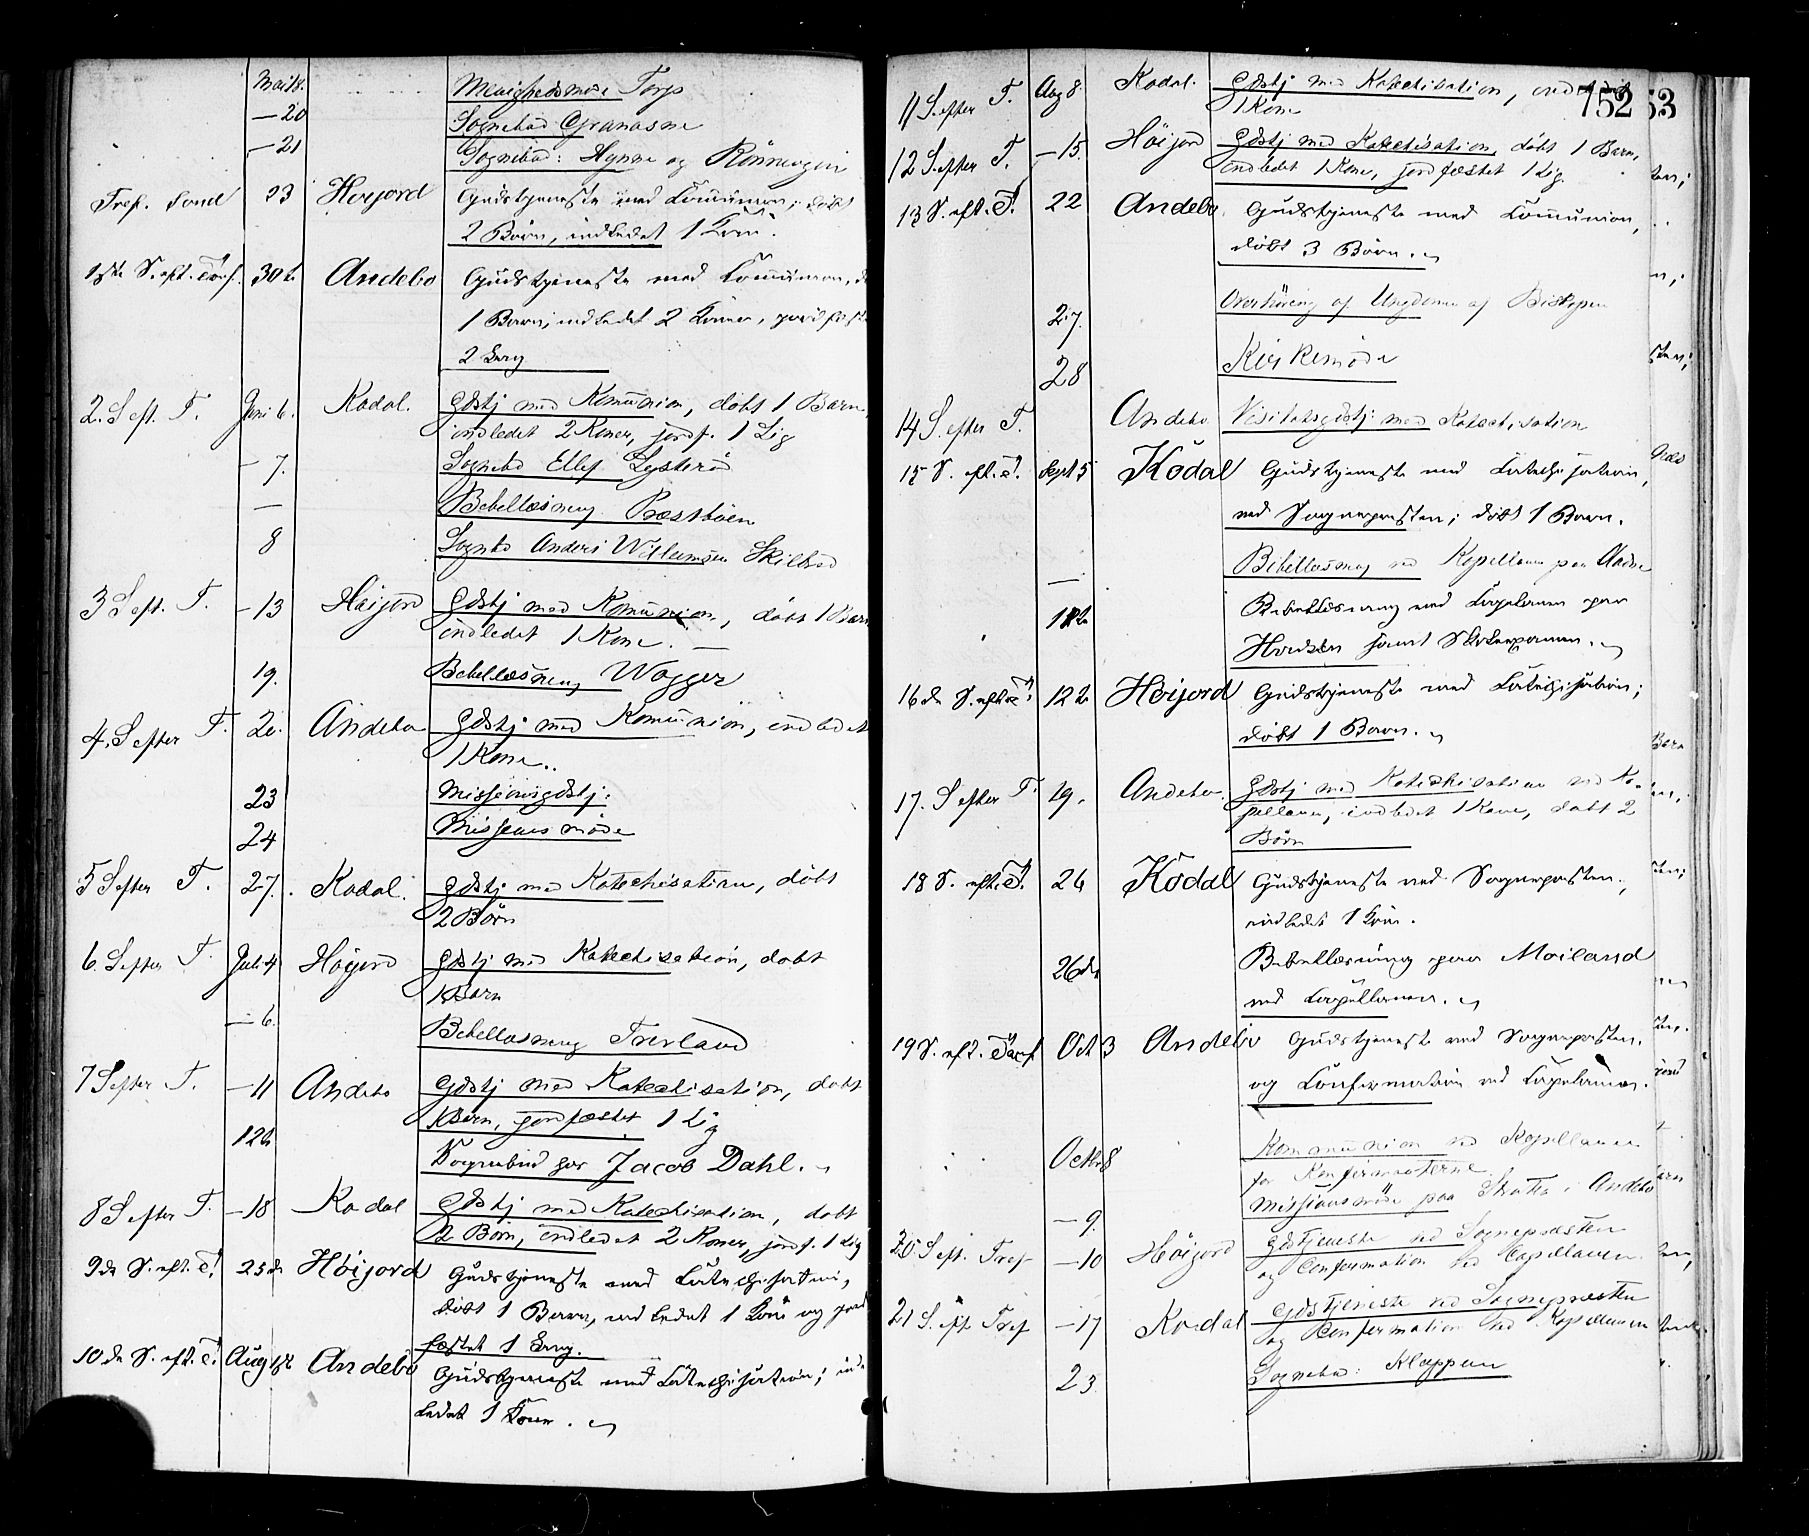 Mai 18. Menighedsmøde Torp
— 20 Sognebud Granaasne
— 21 Sognebud: Hynne og Rönningen
Tref. Sönd 23 Høijord Gudstjeneste med Communion, døbt
2 Børn, indledet 1 Kone.
1ste S. eft. Tref. 30te Andebo Gudstjeneste med Communion,
1 Barn, indledet 2 Koner, jordfæst
2 Lig
2. S eft. T. Juni 6. Kodal. Gdstj med Komunion, døbt 1 Barn
indledet 2 Koner, jordf. 1 Lig
— 7. Sognebud Ellef
— Bibellæsning Præstbøen
8 Sognebud Anders Willumsen
3 S eft. T. — 13 Høijord Gdstj med Komunion, døbt 1 Barn
indledet 1 Kone. —
19. Bibellæsning
4. S efter T. 20. Andebo Gdstj med Komunion, indledet
1 Kone..
23 Missionsgdstj:
24 Missionsmøde
5 S efter T. 27. Kodal. Gdstj med Katechisation, døbt
2 Børn
6. S efter T. Juli 4 Høijord Gdstj med Katechisation, døbt
1 Barn
— 6. Bibellæsning
7 S efter T. — 11 Andebo Gdstj med Katechisation, døbt
Barn, jordfæstet 1 Lig
12te Sognebud hos Jacob Dahl.
8 S efter T. — 18 Kodal Gdstj med Katechisation, døbt
2 Børn, indledet 2 Koner, jordf. 1 Lig
9de S. eft. T. 25de Høijord Gudstjeneste med Catechisation,
døbt 1 Barn, indledet 1 Kone og jord
fæstet 1 Lig.
10de S. eft. T. Aug 1ste Andebo Gudstjeneste med Catechisation; ind
ledet 1 Kone.
752 53
11 S. efter T. Aug 8. Kodal. Gdstj med Katechisation,
1 Kone
12 S. efter T. — 15. Høijord Gdstj med Katechisation, døbt 1 Barn,
indledet 1 Kone, jordfæstet 1 Lig.
13 S. eft. T. 22 Andebo Gudstjeneste med Communion,
døbt 3 Børn.
27. Overhøring af Ungdommen af Biskopen
28 Kirkemøde
14 S. efter T. Andebo Visitatsgdstj: med Katechisation
15 S. eft. T. Sept 5 Kodal Gudstjeneste med Catechisation,
ved Sognepræsten; døbt 1 Barn.
— Bibellæsning ved Kapellanen paa
Bibellæsning ved Capelanen paa
samt
16de S. eft. T. 12te Høijord Gudstjeneste med Catechisation;
døbt 1 Barn.
17. S efter T. 19. Andebo. Gdstj med Katechisation ved Ka-
pellanen, indledet 1 Kone, døbt 2
Børn
18 S. eft. T. 26 Kodal Gudstjeneste ved Sognepræsten.,
indledet 1 Kone.
26de Bibellæsning paa Moiland
ved Capellanen.
19 S. eft. Tref Oct 3 Andebo Gudstjeneste ved Sognepræsten,
og Confirmation ved Capelanen.
Octbr 8 Kommunion ved Kapellanen
for Konfirmanterne
— 9. Missionsmøde paa i Andebo
20 S eft. Tref — 10 Høijord Gdstjeneste ved Sognepræsten
og Confirmation ved Capellanen
21 S. eft Tref — 17 Kodal Gdstjeneste ved Sognepræsten
og Confirmation ved Kapellanen
23 Sognebud: Klappen